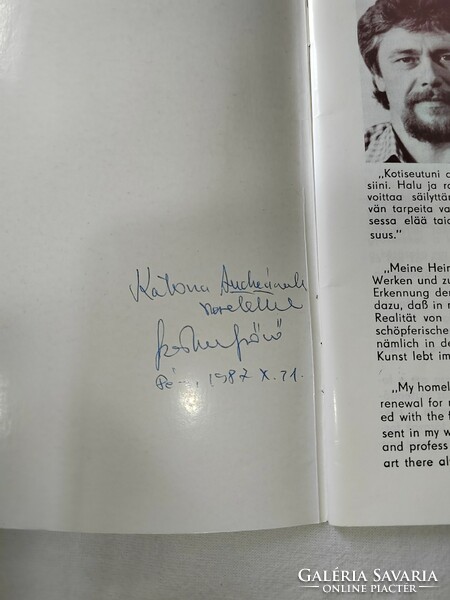 Katona
1987 X. 31.
„Kotiseutuni
siini. Halu ja
voittaa säilyttä
vän tarpeita va
sessa elää taid
suus."
„Meine Hei
Werken und zu
Erkennung der
dazu, daß in m
Realität von
schöpferische
nämlich in de
Kunst lebt im
„My homel
renewal for
ed with the f
sent in my w
and profess
art there al
GALÉRIA SAVARIA
ONLINE PIACTÉR